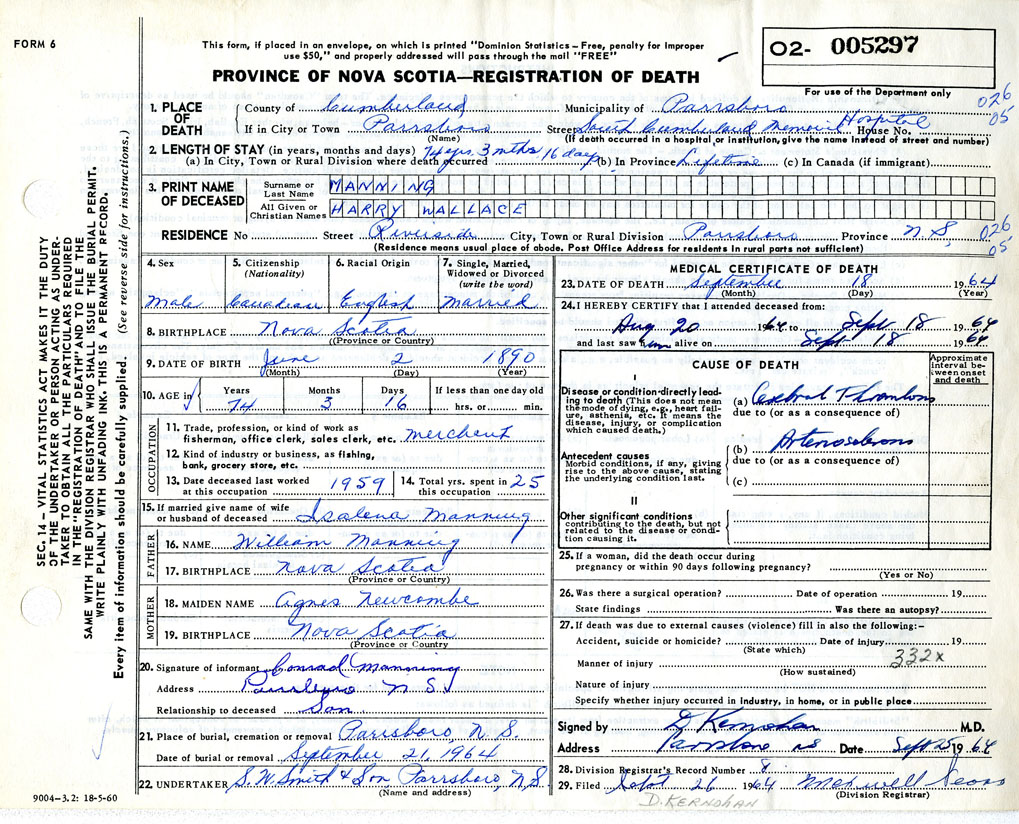 FORM 6
This form, if placed in an envelope, on which is printed "Dominion Statistics – Free, penalty for improper
use $50," and properly addressed will pass through the mail "FREE"
O2- 005297
PROVINCE OF NOVA SCOTIA—REGISTRATION OF DEATH
For use of the Department only
SEC. 14 —VITAL STATISTICS ACT MAKES IT THE DUTY
OF THE UNDERTAKER OR PERSON ACTING AS UNDER-
TAKER TO OBTAIN ALL THE PARTICULARS REQUIRED
IN THE "REGISTRATION OF DEATH" AND TO FILE THE
SAME WITH THE DIVISION REGISTRAR WHO SHALL ISSUE THE BURIAL PERMIT.
WRITE PLAINLY WITH UNFADING INK. THIS IS A PERMANENT RECORD.
Every item of information should be carefully supplied. (See reverse side for instructions.)
1. PLACE OF DEATH
County of Cumberland Municipality of Parrsboro 026
If in City or Town Parrsboro Street South Cumberland Memorial Hospital House No. 05
(Name) (If death occurred in a hospital or institution, give the name instead of street and number)
2. LENGTH OF STAY (in years, months and days) 74 yrs. 3 mths 16 days
(a) In City, Town or Rural Division where death occurred (b) In Province Lifetime (c) In Canada (if immigrant)
3. PRINT NAME OF DECEASED
Surname or Last Name MANNING
All Given or Christian Names HARRY WALLACE
RESIDENCE No Street Riverside City, Town or Rural Division Parrsboro Province N.S. 026
(Residence means usual place of abode. Post Office Address for residents in rural parts not sufficient) 05
4. Sex
Male
5. Citizenship (Nationality)
Canadian
6. Racial Origin
English
7. Single, Married, Widowed or Divorced (write the word)
Married
8. BIRTHPLACE Nova Scotia
(Province or Country)
9. DATE OF BIRTH June 2 1890
(Month) (Day) (Year)
10. AGE in Years Months Days If less than one day old
74 3 16 hrs. or min.
OCCUPATION
11. Trade, profession, or kind of work as
fisherman, office clerk, sales clerk, etc. merchant
12. Kind of industry or business, as fishing,
bank, grocery store, etc.
13. Date deceased last worked at this occupation 1959
14. Total yrs. spent in 25
15. If married give name of wife
or husband of deceased Isalena Manning
FATHER
16. NAME William Manning
17. BIRTHPLACE Nova Scotia
(Province or Country)
MOTHER
18. MAIDEN NAME Agnes Newcombe
19. BIRTHPLACE Nova Scotia
(Province or Country)
20. Signature of informant Conrad Manning
Address Parrsboro N.S.
Relationship to deceased Son
21. Place of burial, cremation or removal Parrsboro, N.S.
Date of burial or removal September 21, 1964
22. UNDERTAKER S.W. Smith & Son, Parrsboro, N.S.
(Name and address)
9004-3.2: 18-5-60
MEDICAL CERTIFICATE OF DEATH
23. DATE OF DEATH September 18 1964
(Month) (Day) (Year)
24. I HEREBY CERTIFY that I attended deceased from:
Aug 20 1964 to Sept 18 1964
and last saw him alive on Sept 18 1964
CAUSE OF DEATH
Approximate interval between onset and death
I
Disease or condition directly leading to death (This does not mean the mode of dying, e.g., heart failure, asthenia, etc. It means the disease, injury, or complication which caused death.)
(a) Cerebral Thrombosis
due to (or as a consequence of)
Antecedent causes
Morbid conditions, if any, giving rise to the above cause, stating the underlying condition last.
(b) Arteriosclerosis
due to (or as a consequence of)
(c)
II
Other significant conditions
contributing to the death, but not related to the disease or condition causing it.
25. If a woman, did the death occur during
pregnancy or within 90 days following pregnancy?
(Yes or No)
26. Was there a surgical operation? Date of operation 19
State findings Was there an autopsy?
27. If death was due to external causes (violence) fill in also the following:–
Accident, suicide or homicide? Date of injury 19
(State which) 332x
Manner of injury
(How sustained)
Nature of injury
Specify whether injury occurred in industry, in home, or in public place
Signed by D Kernohan M.D.
Address Parrsboro NS Date Sept 25 1964
28. Division Registrar's Record Number 8
29. Filed Sept 26 1964
(Division Registrar)
D. KERNOHAN